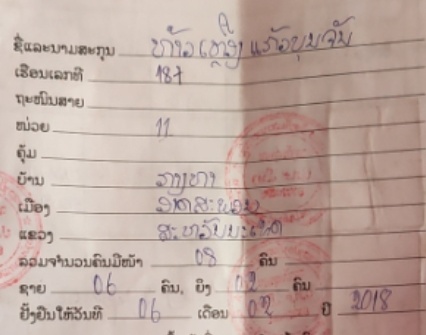 ຊື່ແລະນາມສະກຸນ ທ້າວ ແກ້ວບຸນຈັນ
ເຮືອນເລກທີ 187
ຖະໜົນສາຍ
ໜ່ວຍ 11
ຄຸ້ມ
ບ້ານ
ເມືອງ ອາດສະພອນ
ແຂວງ ສະຫວັນນະເຂດ
ລວມຈຳນວນຄົນມີໜ້າ 08 ຄົນ
ຊາຍ 06 ຄົນ, ຍິງ 02 ຄົນ
ຢັ້ງຢືນໃຫ້ວັນທີ 06 ເດືອນ ປີ 2018